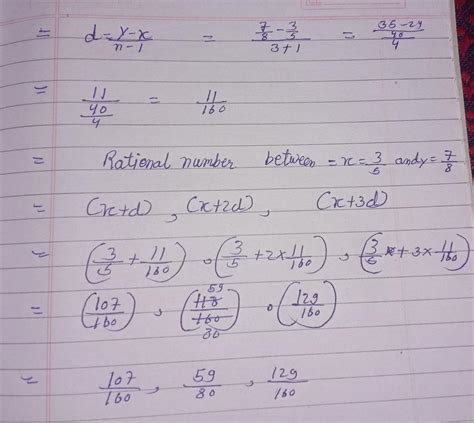 = d = y-x/n-1 = 7/8 - 3/5 / 3+1 = 35-24/40 / 4
= 11/40 / 4 = 11/160
= Rational number between = x = 3/5 and y = 7/8
= (x+d) , (x+2d) , (x+3d)
= (3/5 + 11/160) , (3/5 + 2×11/160) , (3/5 + 3×11/160)
= (107/160) , (118/160 59/80) , (129/160)
= 107/160 , 59/80 , 129/160